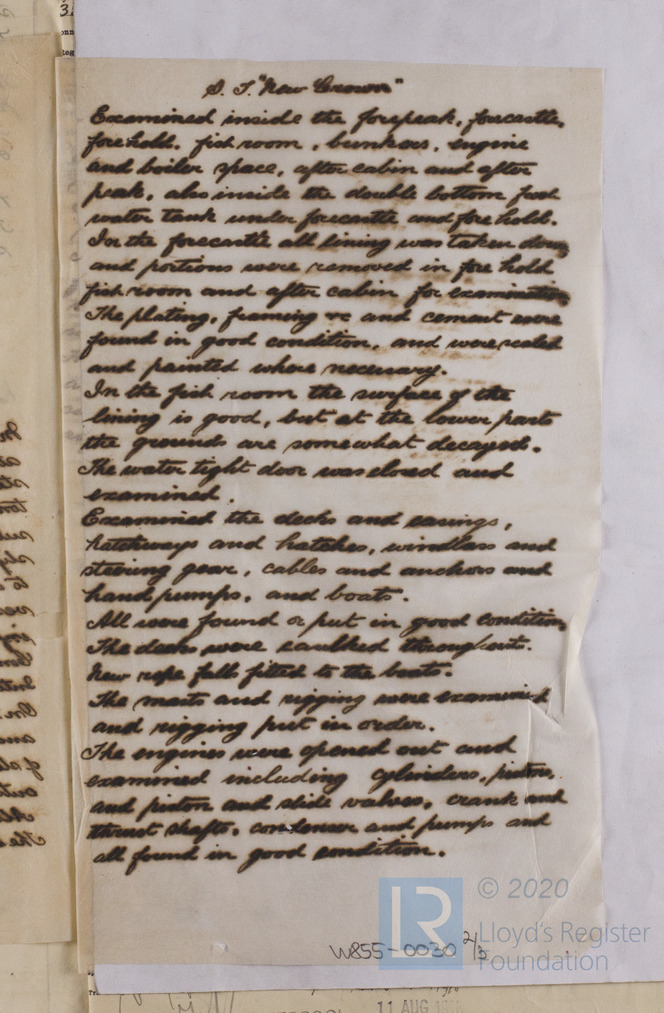 S. T. "New Crown"
Examined inside the forepeak, forecastle,
forehold, fish room, bunkers, engine
and boiler space, after cabin and after
peak, also inside the double bottom feed
water tank under forecastle and fore hold.
In the forecastle all lining was taken down,
and portions were removed in fore hold
fish room and after cabin for examination
The plating, framing &c and cement were
found in good condition, and were scaled
and painted where necessary.
In the fish room the surface of the
lining is good, but at the lower parts
the grounds are somewhat decayed.
The water tight door was closed and
examined.
Examined the decks and casings,
hatchways and hatches, windlass and
steering gear, cables and anchors and
hand pumps, and boats.
All were found or put in good condition,
The decks were caulked throughout.
New rope falls fitted to the boats.
The masts and rigging were examined
and rigging put in order.
The engines were opened out and
examined including cylinders, pistons,
and piston and slide valves, crank and
thrust shafts, condenser and pumps and
all found in good condition.
LR © 2020
Lloyd's Register
Foundation
W855-0030 2/3
11 AUG